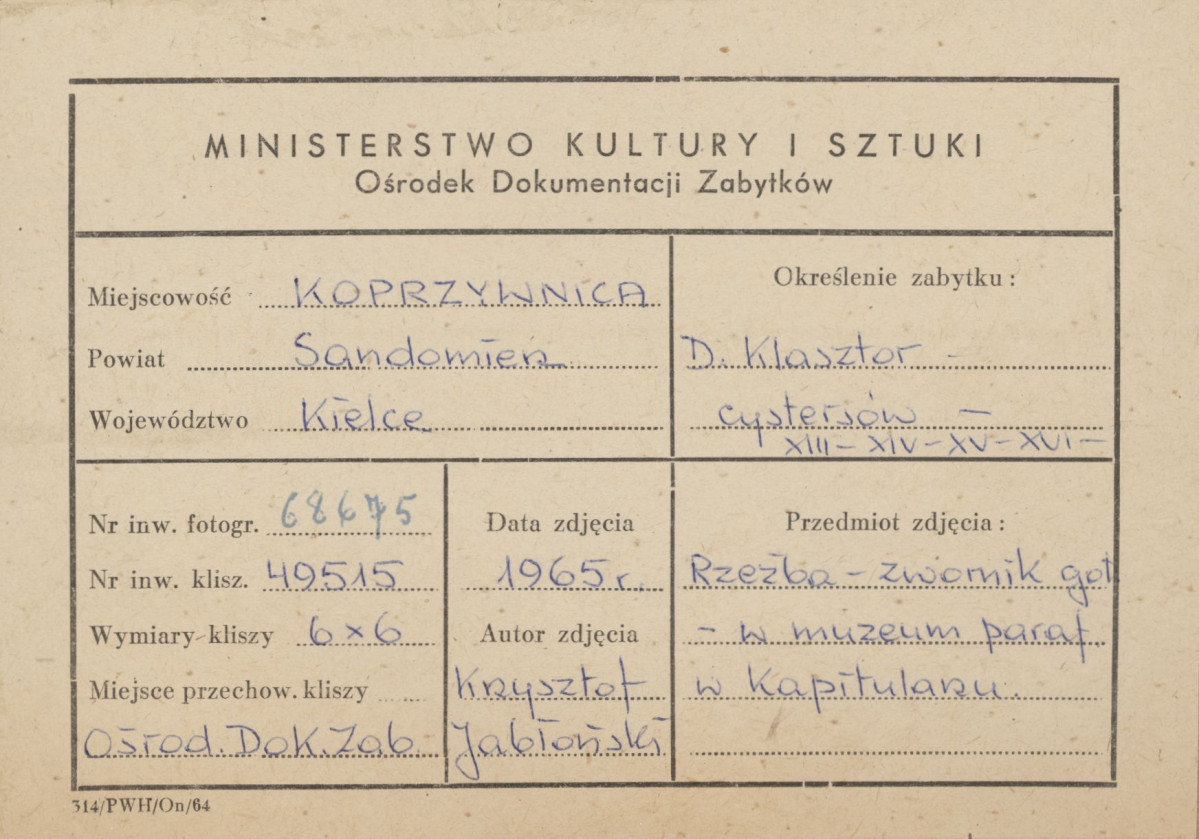 MINISTERSTWO KULTURY I SZTUKI
Ośrodek Dokumentacji Zabytków
Miejscowość KOPRZYWNICA
Powiat Sandomierz
Województwo Kielce
Określenie zabytku:
D. Klasztor -
cystersów -
XIII - XIV - XV - XVI -
Nr inw. fotogr. 68675
Nr inw. klisz. 49515
Wymiary kliszy 6 x 6
Miejsce przechow. kliszy
Ośrod. Dok. Zab.
Data zdjęcia
1965 r.
Autor zdjęcia
Krzysztof
Jabłoński
Przedmiot zdjęcia:
Rzeźba - zwornik got
- w muzeum paraf.
w Kapitularzu.
314/PWH/On/64